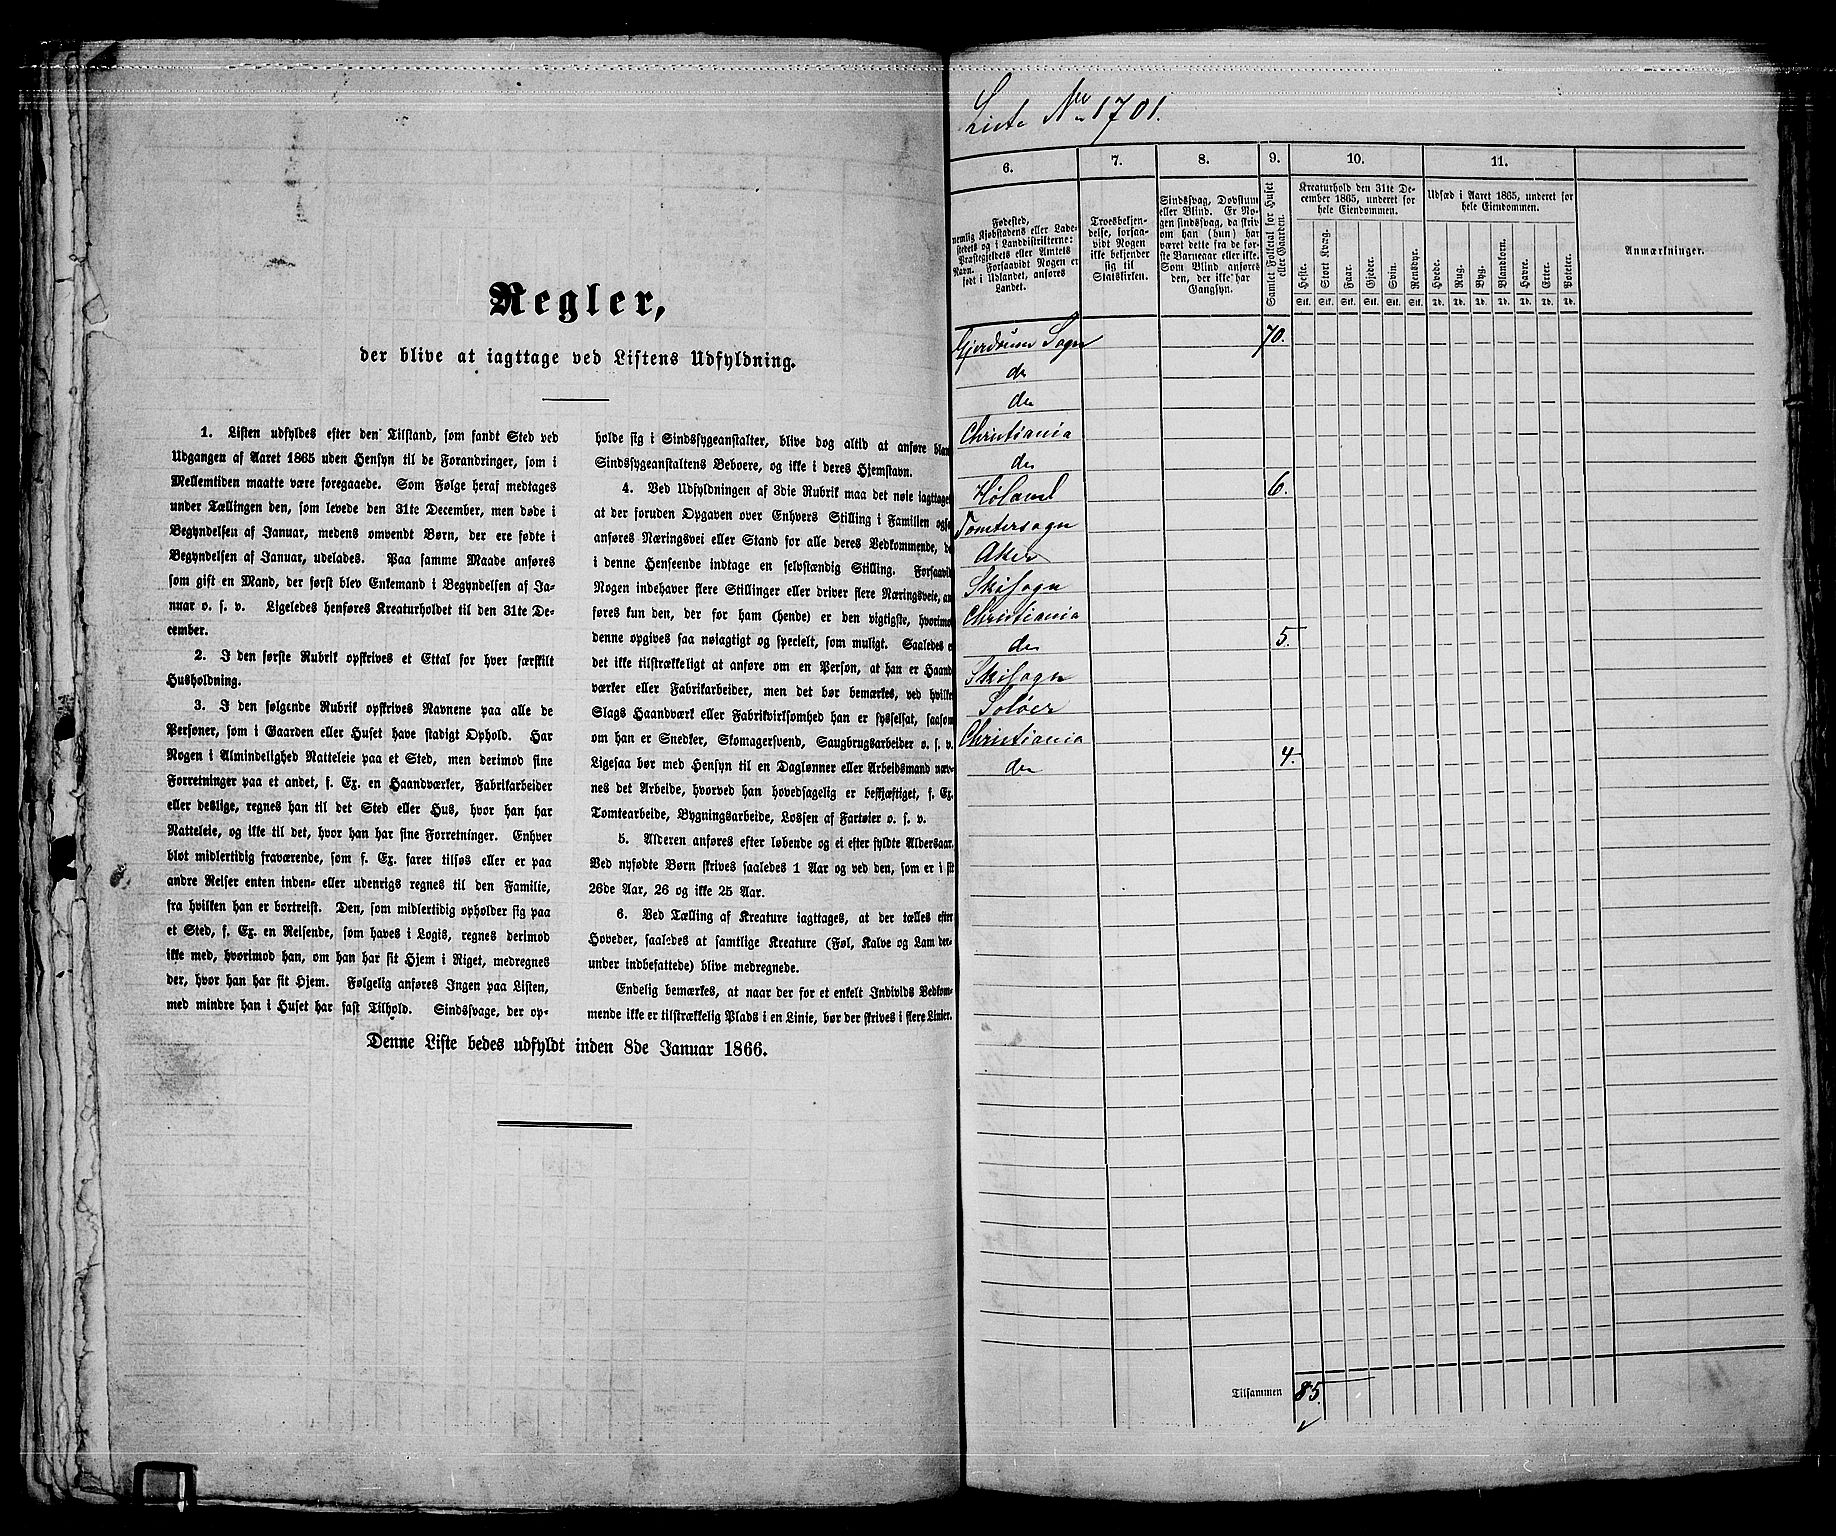 Regler,
der blive at iagttage ved Listens Udfyldning.
1. Listen udfyldes efter den Tilstand, som fandt Sted ved
Udgangen af Aaret 1865 uden Hensyn til de Forandringer, som i
Mellemtiden maatte være foregaaede. Som Følge heraf medtages
under Tællingen den, som levede den 31te December, men døde i
Begyndelsen af Januar, medens omvendt Børn, der ere fødte i
Begyndelsen af Januar, udelades. Paa samme Maade anføres
som gift en Mand, der først blev Enkemand i Begyndelsen af Ja-
nuar o. s. v. Ligeledes henføres Kreaturholdet til den 31te De-
cember.
2. I den første Rubrik opskrives et Ettal for hver særskilt
Husholdning.
3. I den følgende Rubrik opskrives Navnene paa alle de
Personer, som i Gaarden eller Huset have stadigt Ophold. Har
Nogen i Almindelighed Natteleie paa et Sted, men derimod sine
Forretninger paa et andet, f. Ex. en Haandværker, Fabrikarbeider
eller deslige, regnes han til det Sted eller Hus, hvor han har
Natteleie, og ikke til det, hvor han har sine Forretninger. Enhver
blot midlertidig fraværende, som f. Ex. farer tilsøs eller er paa
andre Reiser enten inden- eller udenrigs regnes til den Familie,
fra hvilken han er bortreist. Den, som midlertidig opholder sig paa
et Sted, f. Ex. en Reisende, som haves i Logis, regnes derimod
ikke med, hvorimod han, om han har sit Hjem i Riget, medregnes
der, hvor han har sit Hjem. Følgelig anføres Ingen paa Listen,
med mindre han i Huset har fast Tilhold. Sindssvage, der op-
holde sig i Sindssygeanstalter, blive dog altid at anføre blan
Sindssygeanstaltens Beboere, og ikke i deres Hjemstavn.
4. Ved Udfyldningen af 3die Rubrik maa det nøie iagttages
at der foruden Opgaven over Enhvers Stilling i Familien ogsa
anføres Næringsvei eller Stand for alle deres Vedkommende, de
i denne Henseende indtage en selvstændig Stilling. Forsaavidt
Nogen indehaver flere Stillinger eller driver flere Næringsveie, an
føres kun den, der for ham (hende) er den vigtigste, hvorimo
denne opgives saa nøiagtigt og specielt, som muligt. Saaledes e
det ikke tilstrækkeligt at anføre om en Person, at han er Haand
værker eller Fabrikarbeider, men det bør bemærkes, ved hvilke
Slags Haandværk eller Fabrikvirksomhed han er sysselsat, saasom
om han er Snedker, Skomagersvend, Saugbrugsarbeider o. s. v.
Ligesaa bør med Hensyn til en Daglønner eller Arbeidsmand næv-
nes det Arbeide, hvorved han hovedsagelig er beskjæftiget, f. Ex.
Tomtearbeide, Bygningsarbeide, Lossen af Fartøier o. s. v.
5. Alderen anføres efter løbende og ei efter fyldte Aldersaar.
Ved nyfødte Børn skrives saaledes 1 Aar og ved den, som er i sit
26de Aar, 26 og ikke 25 Aar.
6. Ved Tælling af Kreature iagttages, at der tælles efter
Hoveder, saaledes at samtlige Kreature (Føl, Kalve og Lam der-
under indbefattede) blive medregnede.
Endelig bemærkes, at naar der for et enkelt Individs Vedkom-
mende ikke er tilstrækkelig Plads i en Linie, bør der skrives i flere Linier.
Denne Liste bedes udfyldt inden 8de Januar 1866.
Liste No 1701.
6. 7. 8. 9. 10. 11.
Fødested,
nemlig Kjøbstadens eller Lade-
stedets og i Landdistrikterne:
Præstegjeldets eller Amtets
Navn. Forsaavidt Nogen er
født i Udlandet, anføres
Landet.
Troesbekjen-
delse, forsaa-
vidt Nogen
ikke bekjender
sig til
Statskirken.
Sindssvag, Døvstum
eller Blind. Er No-
gen sindssvag, da skriv
om han (hun) har
været dette fra de før-
ste Barneaar eller ikke.
Som Blind anføres
den, der ikke har
Gangsyn.
Samlet Folketal for Huset
eller Gaarden.
Kreaturhold den 31te De-
cember 1865, underet for
hele Eiendommen.
Heste. Stort Kvæg. Faar. Gjeder. Svin. Rensdyr.
Stk. Stk. Stk. Stk. Stk. Stk.
Udsæd i Aaret 1865, underet for
hele Eiendommen.
Hvede. Rug. Byg. Blandkorn. Havre. Erter. Poteter.
Td. Td. Td. Td. Td. Td. Td.
Anmærkninger.
Gjerdrum Sogn 70.
do
do
Christiania
do
Høland 6.
Tomtersogn
Aker
Skisogn
Christiania
do 5.
Skisogn
Soløer
Christiania
do 4.
Tilsammen 85.